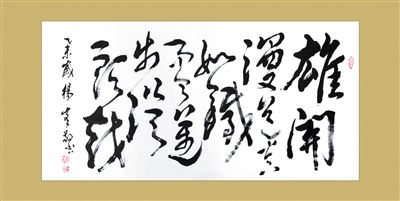 雄關
漫道真
如鐵
而今邁
步從
頭越
乙未歲楊書